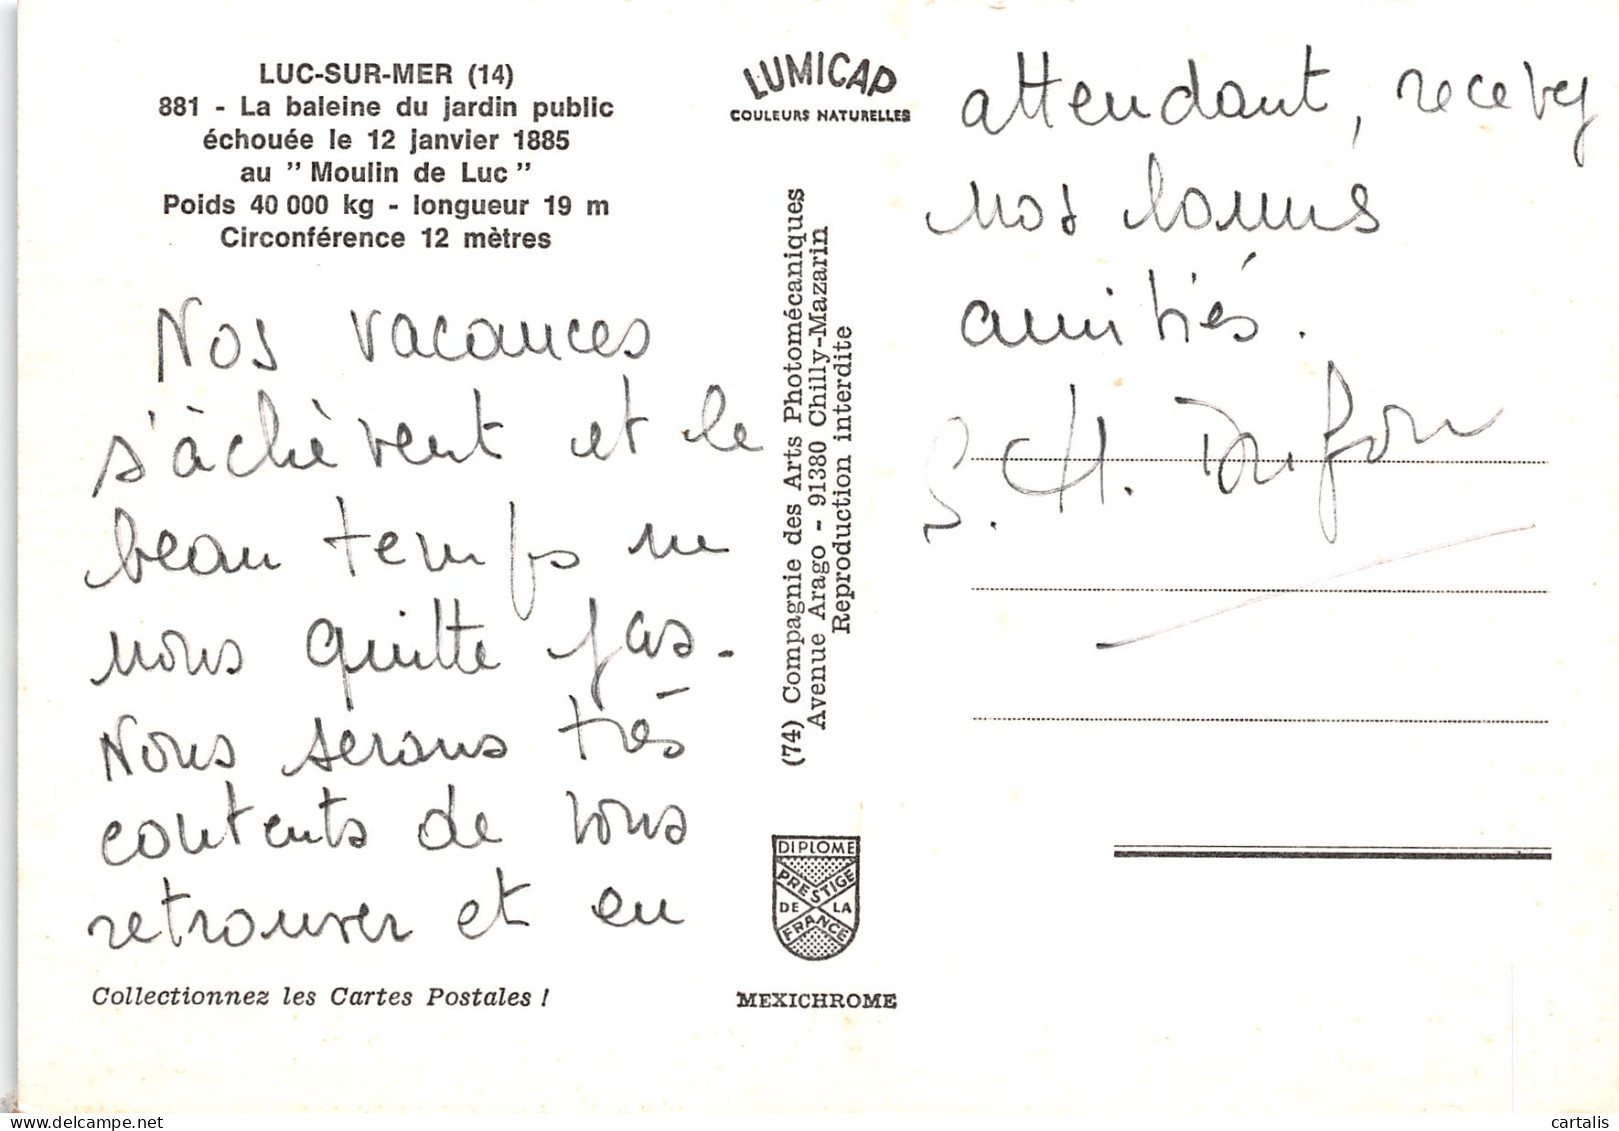 LUC-SUR-MER (14)
881 - La baleine du jardin public
échouée le 12 janvier 1885
au " Moulin de Luc "
Poids 40 000 kg - longueur 19 m
Circonférence 12 mètres
Nos vacances
s'àchèvent et le
beau temps ne
nous quitte pas.
Nous serons très
contents de vous
retrouver et en
Collectionnez les Cartes Postales !
LUMICAP
COULEURS NATURELLES
(74) Compagnie des Arts Photomécaniques
Avenue Arago - 91380 Chilly-Mazarin
Reproduction interdite
DIPLOME
PRESTIGE
DE LA
FRANCE
MEXICHROME
attendant, recevez
nos bonnes
amitiés.
cartalis